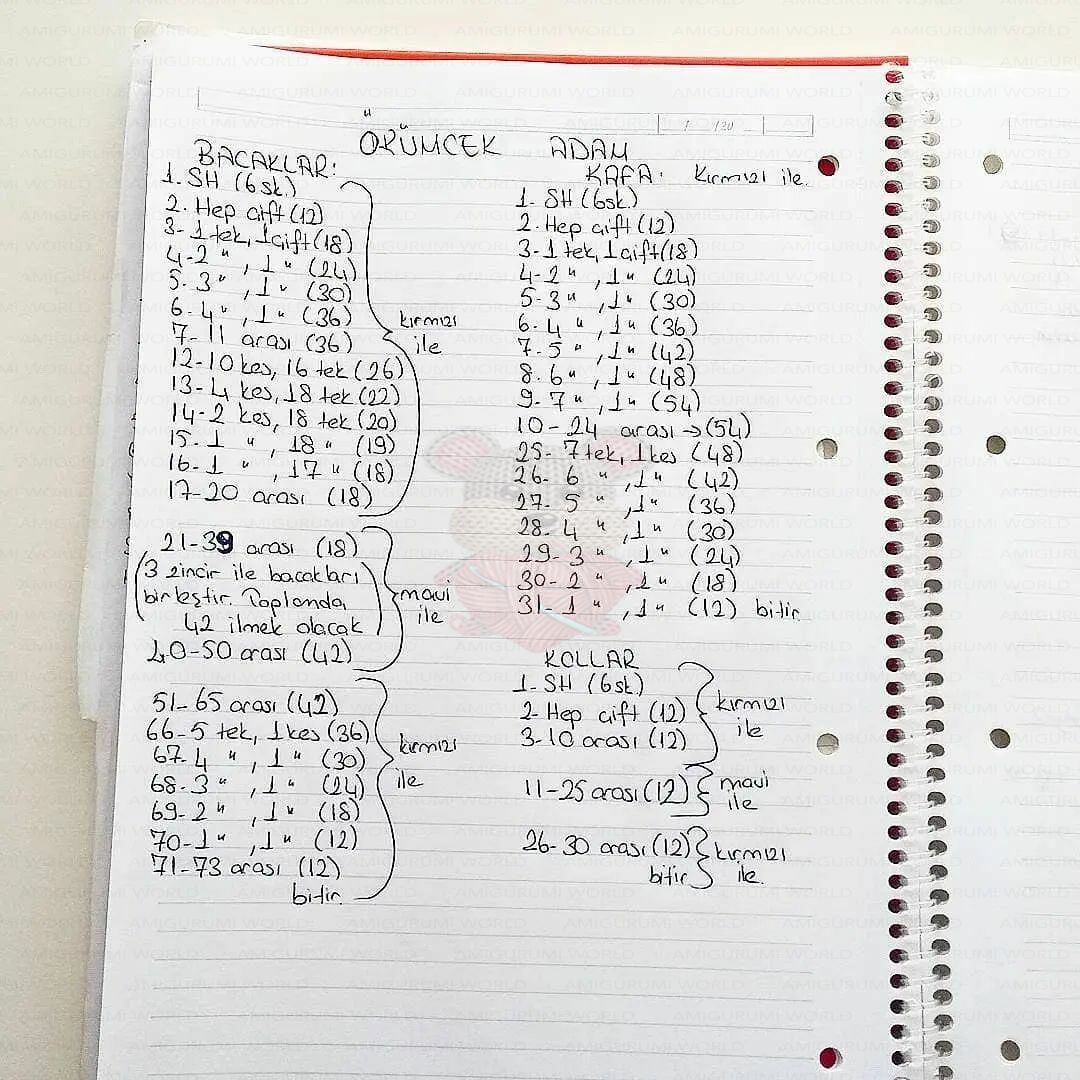 ÖRÜMCEK ADAM
BACAKLAR:
1. SH (6sk)
2. Hep çift (12)
3-1 tek, 1çift (18)
4-2 " , 1 " (24)
5. 3 " , 1 " (30)
6-4 " , 1 " (36)
7-11 arası (36)
12-10 kes, 16 tek (26)
13-4 kes, 18 tek (22)
14-2 kes, 18 tek (20)
15-1 " , 18 " (19)
16-1 " , 17 " (18)
17-20 arası (18)
kırmızı
ile
21-39 arası (18)
(3 zincir ile bacakları
birleştir. Toplamda
42 ilmek olacak)
40-50 arası (42)
mavi
ile
51-65 arası (42)
66-5 tek, 1kes (36)
67-4 " , 1 " (30)
68-3 " , 1 " (24)
69-2 " , 1 " (18)
70-1 " , 1 " (12)
71-73 arası (12)
bitir
kırmızı
ile
KAFA: Kırmızı ile
1- SH (6sk)
2- Hep çift (12)
3-1 tek, 1çift (18)
4-2 " , 1 " (24)
5-3 " , 1 " (30)
6-4 " , 1 " (36)
7-5 " , 1 " (42)
8-6 " , 1 " (48)
9-7 " , 1 " (54)
10-24 arası → (54)
25-7 tek, 1 kes (48)
26-6 " , 1 " (42)
27-5 " , 1 " (36)
28-4 " , 1 " (30)
29-3 " , 1 " (24)
30-2 " , 1 " (18)
31-1 " , 1 " (12) bitir
KOLLAR
1. SH (6sk)
2- Hep çift (12)
3-10 arası (12)
kırmızı
ile
11-25 arası (12)
mavi
ile
26-30 arası (12)
bitir
kırmızı
ile
AMIGURUMI WORLD